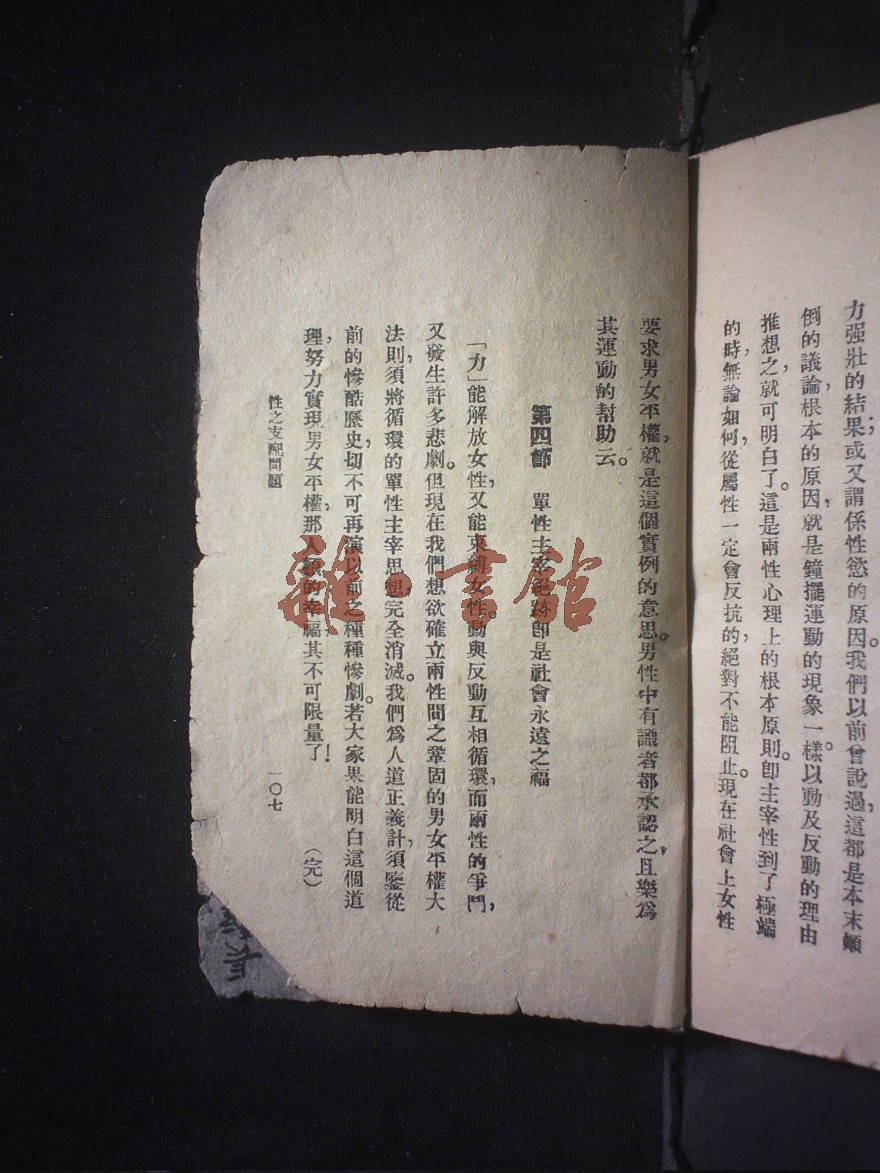 力强壯的結果；或又謂係性慾的原因。我們以前曾說過，這都是本末顚
倒的議論，根本的原因，就是鐘擺運動的現象一樣。以動及反動的理由
推想之，就可明白了。這是兩性心理上的根本原則。卽主宰性到了極端
的時，無論如何，從屬性一定會反抗的，絕對不能阻止。現在社會上女性
要求男女平權，就是這個實例的意思。男性中有識者都承認之，且樂爲
其運動的幫助云。
第四節　單性主宰絕跡卽是社會永遠之福
「力」能解放女性，又能束縛女性。動與反動互相循環，而兩性的爭鬥，
又發生許多悲劇。但現在我們想欲確立兩性間之鞏固的男女平權大
法則，須將循環的單性主宰思想，完全消滅。我們爲人道正義計，須鑒從
前的慘酷歷史，切不可再演以前之種種慘劇。若大家果能明白這個道
理，努力實現男女平權，那人類的幸福其不可限量了！
（完）
性之支配問題
一〇七
雜·書館